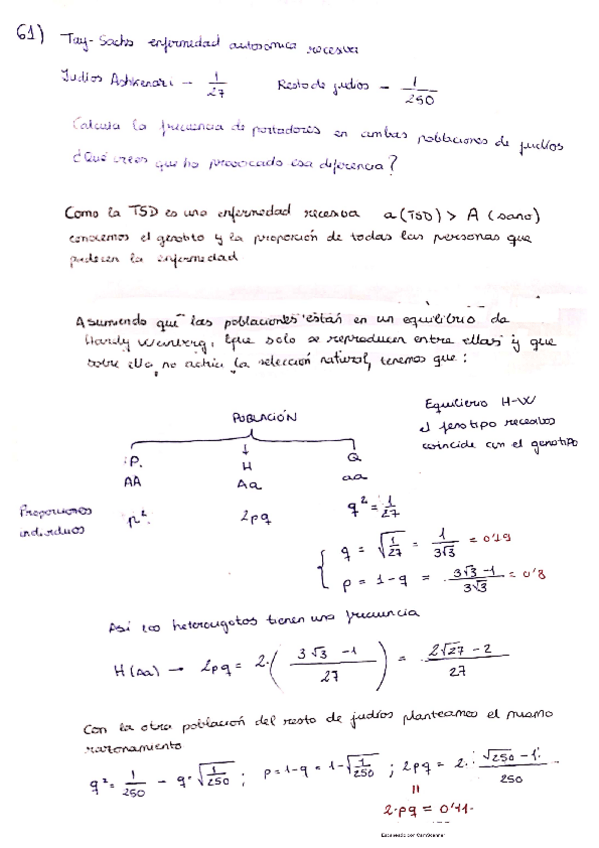 61) Tay-Sachs enfermedad autosomica recesiva
Judios Ashkenazi - 1/27 Resto de judios - 1/250
Calcula la frecuencia de portadores en ambas poblaciones de judíos
¿Qué crees que ha provocado esa diferencia?
Como la TSD es una enfermedad recesiva a (TSD) > A (sano)
conocemos el genotipo y la proporción de todas las personas que
padecen la enfermedad
Asumiendo que las poblaciones están en un equilibrio de
Hardy Wenberg, (que solo se reproducen entre ellas y que
sobre ella no actúa la selección natural, tenemos que:
Equilibrio H-W
el fenotipo recesivo
coincide con el genotipo
POBLACIÓN
P H Q
AA Aa aa
Proporciones
individuos
p² 2pq q² = 1/27
q = √1/27 = 1/3√3 = 0'19
p = 1 - q = 3√3 - 1/3√3 = 0'8
Así los heterozigotos tienen una frecuencia
H (Aa) → 2pq = 2·(3√3 - 1/27) = 2√27 - 2/27
Con la otra población del resto de judíos planteamos el mismo
razonamiento
q² = 1/250 - q = √1/250 ; p = 1 - q = 1 - √1/250 ; 2pq = 2 · √250 - 1/250
"
2·pq = 0'11
Escaneado por CamScanner